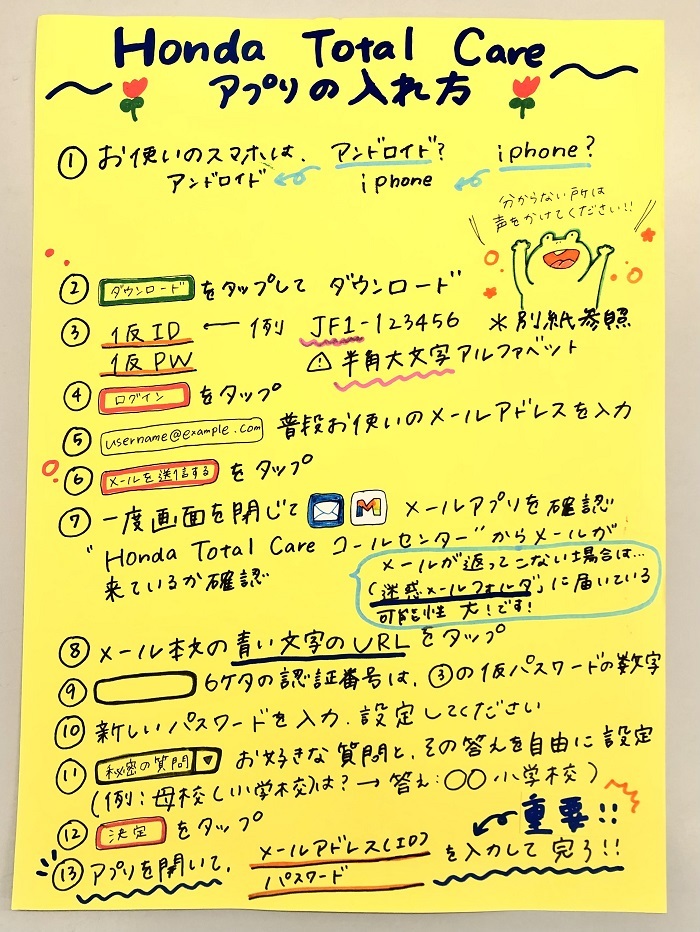 Honda Total Care
アプリの入れ方
① お使いのスマホは、 アンドロイド? iphone?
アンドロイド iphone
分からない所は
声をかけてください!!
② ダウンロード をタップして ダウンロード
③ 仮ID ← 例 JF1-123456 *別紙参照
仮PW ⚠ 半角大文字アルファベット
④ ログイン をタップ
⑤ username@example.com 普段お使いのメールアドレスを入力
⑥ メールを送信する をタップ
⑦ 一度画面を閉じて メールアプリを確認
"Honda Total Care コールセンター"からメールが
来ているか確認
メールが返ってこない場合は…
「迷惑メールフォルダ」に届いている
可能性 大!です!
⑧ メール本文の青い文字のURL をタップ
⑨ 6ケタの認証番号は、③の仮パスワードの数字
⑩ 新しいパスワードを入力、設定してください
⑪ 秘密の質問 ▼ お好きな質問と、その答えを自由に設定
(例:母校(小学校)は? → 答え:〇〇小学校)
⑫ 決定 をタップ
重要!!
⑬ アプリを開いて、 メールアドレス(ID) を入力して 完了!!
パスワード